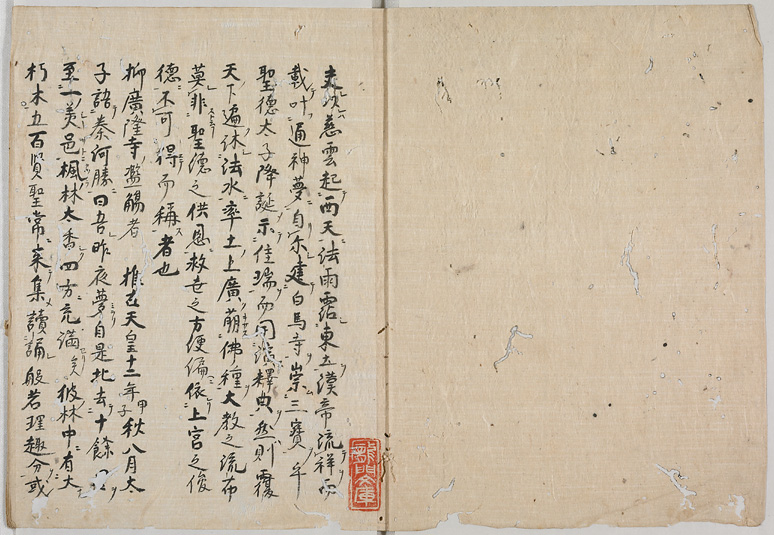 夫以慈雲起西天法雨霑東土漢帝流祥而
載叶通神夢自尓建白馬寺崇三寶
聖德太子降誕示佳瑞而開演釋典然則覆
天下遍沐法水率土上廣萠佛種大教之流布
莫非聖德之供恩救世之方便偏依上宮之俊
德不可得而稱者也
抑廣隆寺濫觴者 推古天皇十二年甲子秋八月太
子語秦河勝曰吾昨夜夢自是北去十餘里
至一美邑楓林太香四方充滿矣彼林中有大
朽木五百賢聖常来集讀誦般若理趣分或
龍門文庫